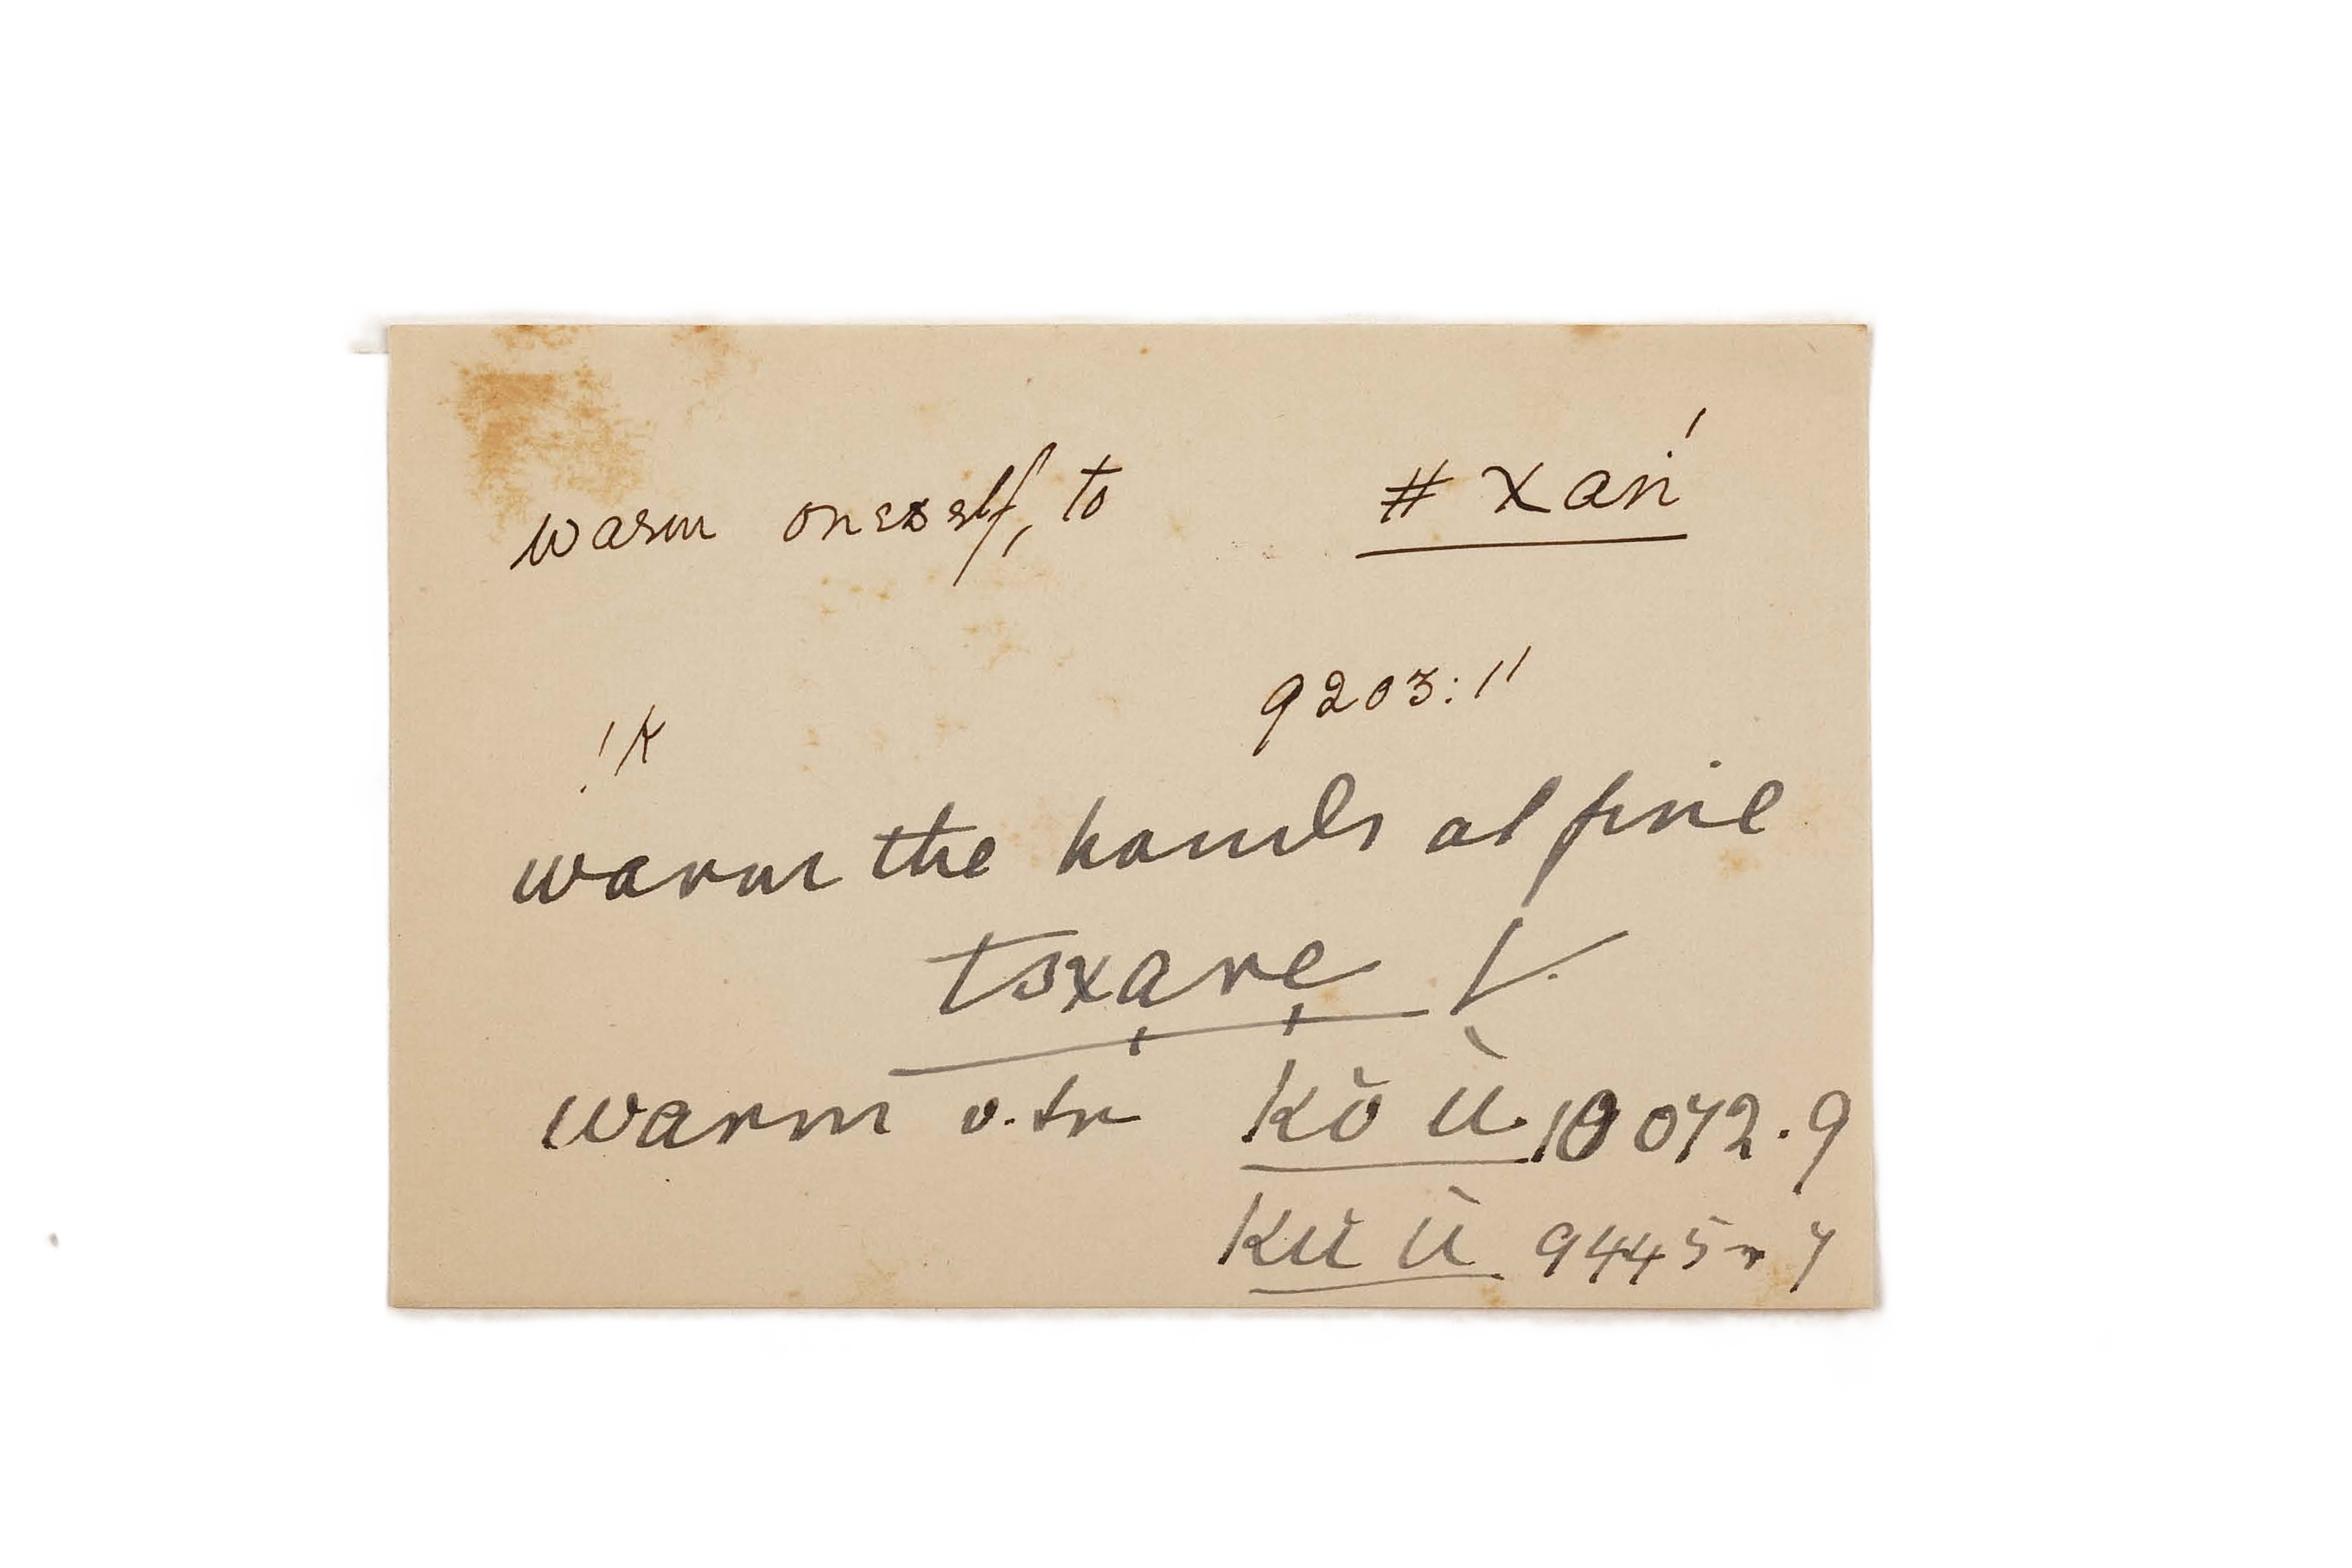 warm oneself, to # xaṅ́
9203:11
!k
warm the hands at fire
tsxạrẹ V.
warm v.tr kŏ ŭ̀. 10072.9
kŭ ŭ̀ 9445 r 7